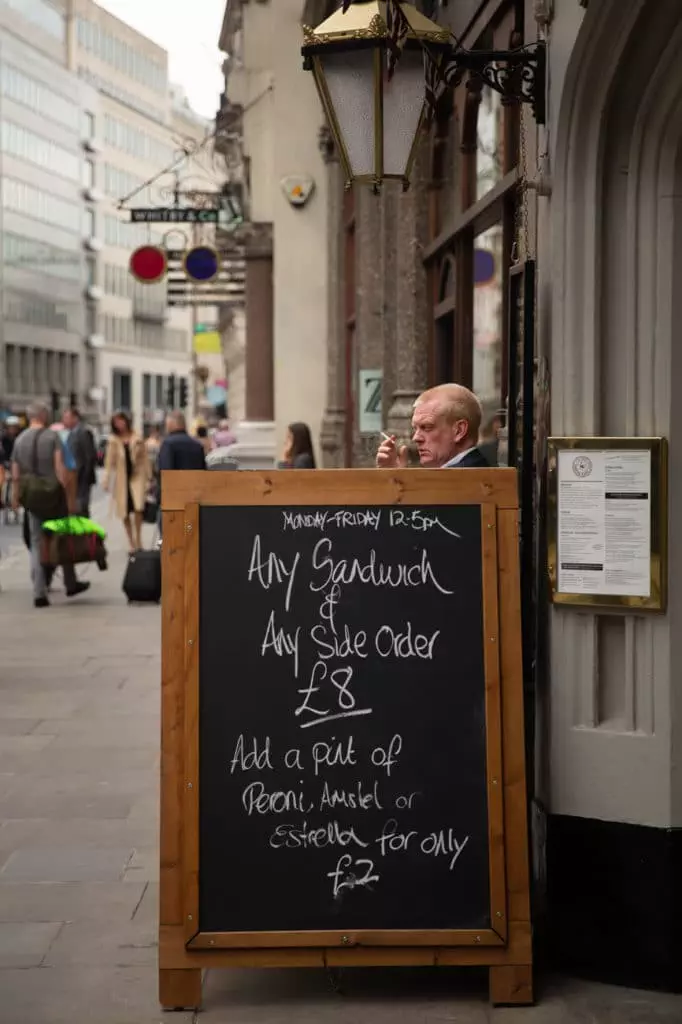 WHITBY & Co
Z
MONDAY-FRIDAY 12-5pm
Any Sandwich
&
Any Side Order
£8
Add a pint of
Peroni, Amstel or
Estrella for only
£2